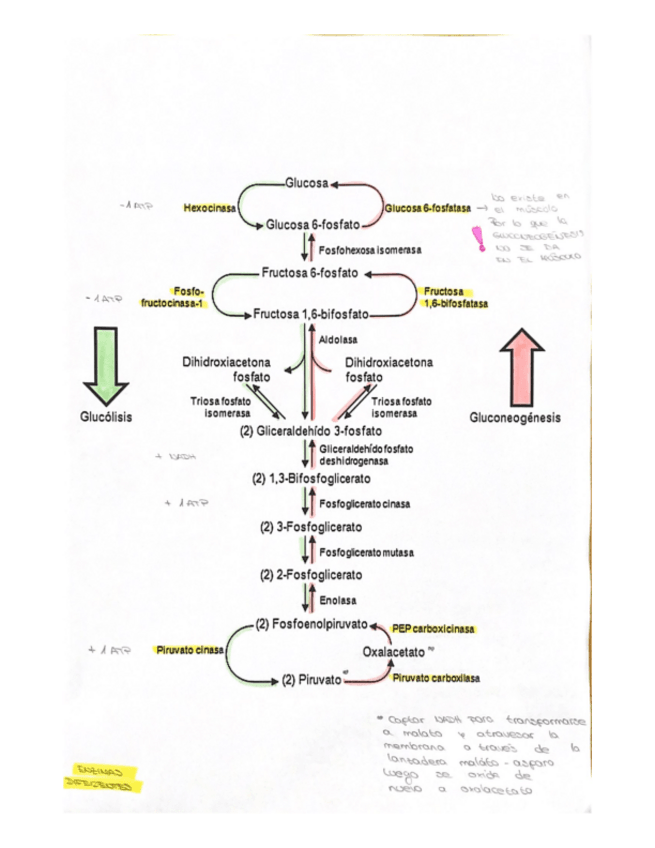 Glucosa
-1 ATP
Hexocinasa
Glucosa 6-fosfatasa → No existe en
el músculo
Por lo que la
GLUCONEOGÉNESIS
NO SE DA
EN EL MÚSCULO
Glucosa 6-fosfato
Fosfohexosa isomerasa
Fructosa 6-fosfato
-1 ATP
Fosfo-
fructocinasa-1
Fructosa
1,6-bifosfatasa
Fructosa 1,6-bifosfato
Aldolasa
Dihidroxiacetona
fosfato
Dihidroxiacetona
fosfato
Triosa fosfato
isomerasa
Triosa fosfato
isomerasa
Glucólisis
Gluconeogénesis
(2) Gliceraldehído 3-fosfato
+ NADH
Gliceraldehído fosfato
deshidrogenasa
(2) 1,3-Bifosfoglicerato
+ 1 ATP
Fosfoglicerato cinasa
(2) 3-Fosfoglicerato
Fosfoglicerato mutasa
(2) 2-Fosfoglicerato
Enolasa
(2) Fosfoenolpiruvato
PEP carboxicinasa
+ 1 ATP
Piruvato cinasa
Oxalacetato *
(2) Piruvato *
Piruvato carboxilasa
* Captar NADH para transformarse
a malato y atravesar la
membrana a través de la
lanzadera malato-aspara
luego se oxida de
nuevo a oxalacetato
ENZIMAS
DIFERENTES